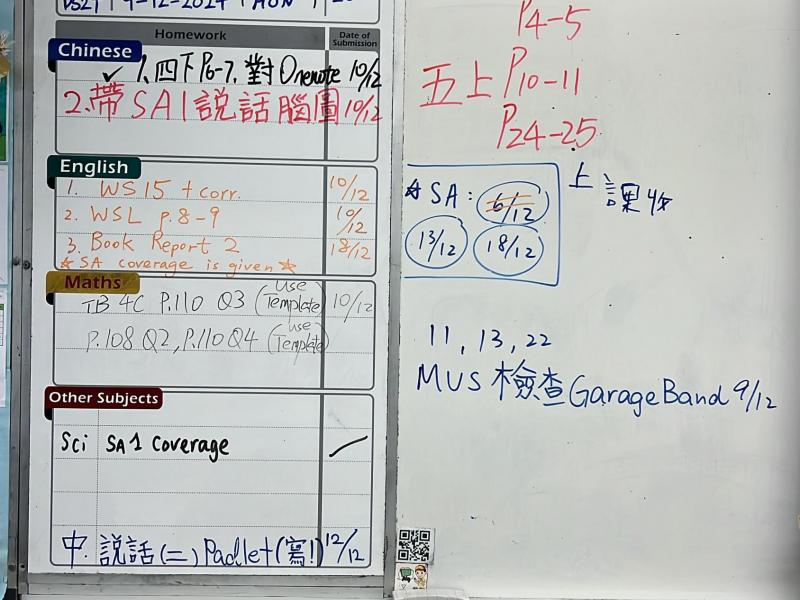 9-12-2024
MON
Homework
Date of Submission
Chinese
✓ 1. 四下P6-7, 對Onenote 10/12
2. 帶SA1說話腦圖 10/12
English
1. WS 15 + corr. 10/12
2. WSL p.8-9 10/12
3. Book Report 2 18/12
☆ SA coverage is given ☆
Maths
TB 4C P.110 Q3 (Use Template) 10/12
P.108 Q2, P.110 Q4 (Use Template)
Other Subjects
Sci SA1 Coverage
中. 說話(二) Padlet (寫!) 12/12
P4-5
五上 P10-11
P24-25
☆ SA: 6/12
13/12 18/12
上課收
11, 13, 22
MUS 檢查 GarageBand 9/12